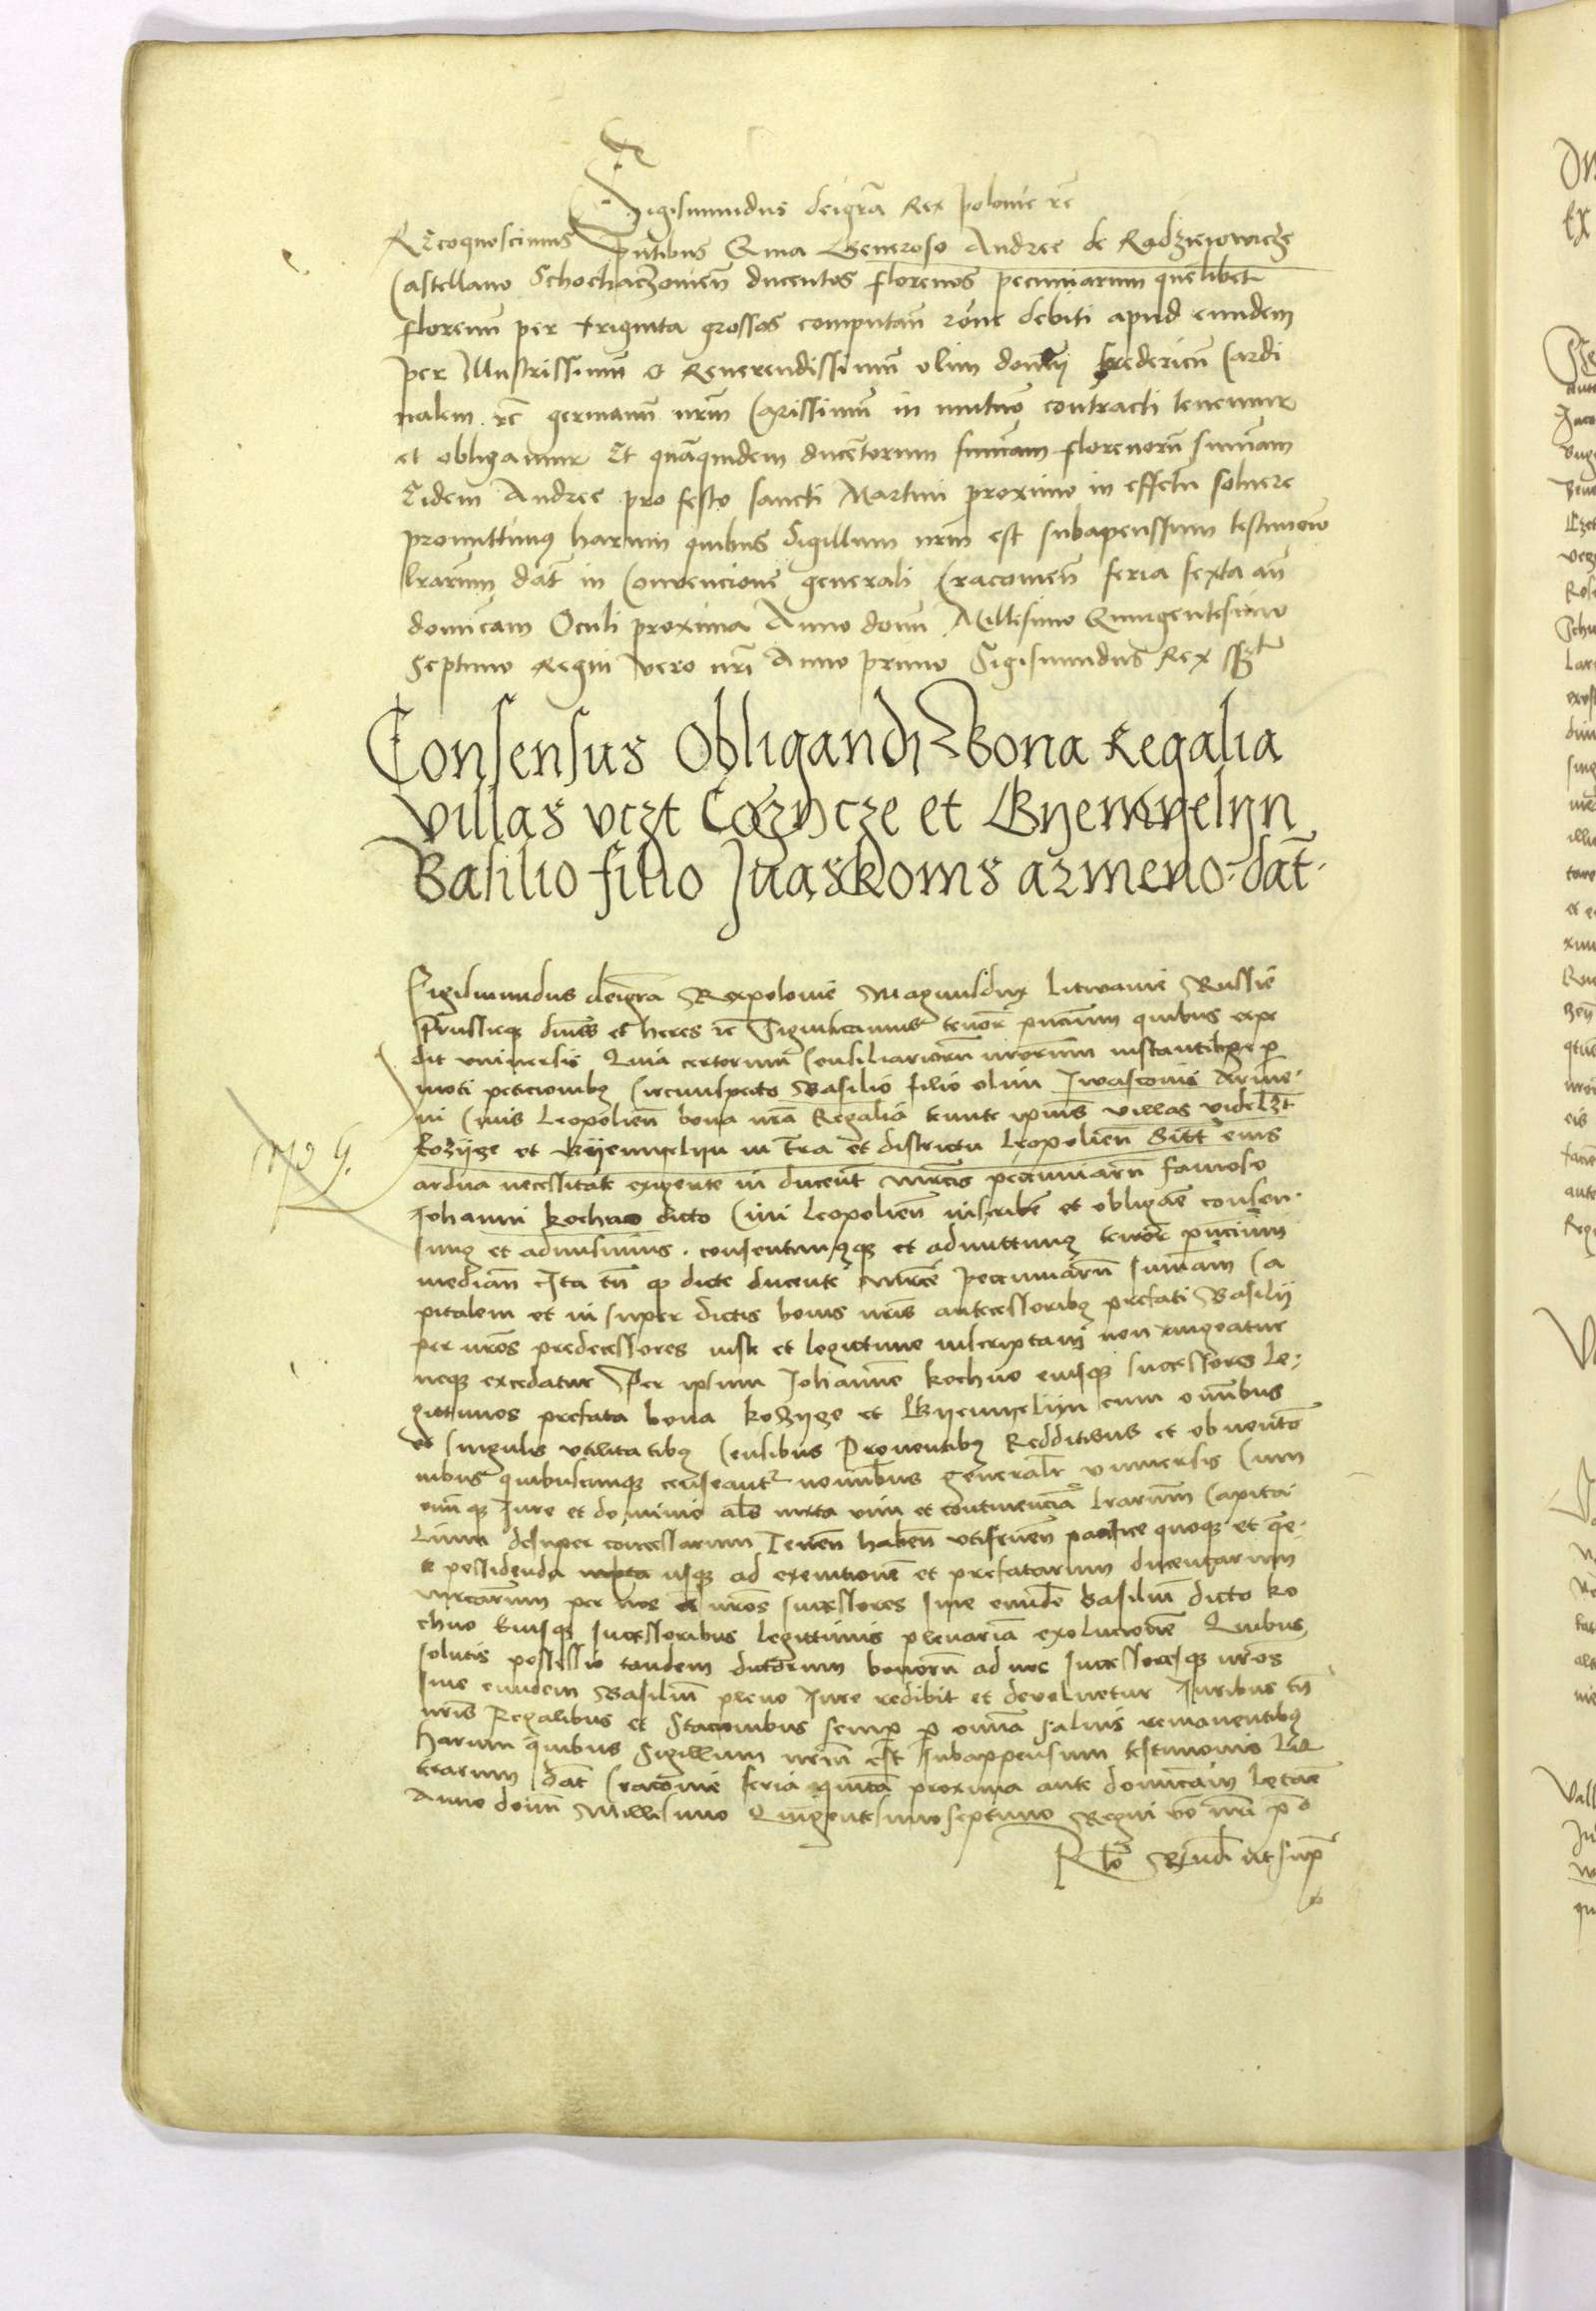 Sigismundus deigrā Rex polonie rē
Recognoscimus pntibus Quia Generoso Andree de Radziejowicze
Castellano Schochaczowien̄ ducentos florenos pecuniarum quelibet
florenū per triginta grossos computan̄ rōne debiti apud eundem
per Illustrissimū & Reverendissimū olim dom̄ Fredericū Cardi
nalem rē germanū nrm̄ Carissimū in mutuo contracti tenemur
et obligamur Et quāquidem ducētorum sum̄am florenorū sum̄am
Eidem Andree pro festo sancti Martini proximo in effectu solvere
promittimus harum quibus Sigillum nrm̄ est subapenssum testimonio
lrarum dat̄ in Convencione generali Cracovien̄ feria sexta an̄
domīcam Oculi proxima Anno domī Millesimo Quingentesimo
Septimo Regni vero nrī Anno primo Sigismundus Rex sszt
Consensus Obligandi Bona Regalia
villas vczt Cozycze et Byemyelyn
Basilio filio Jvaskonis armeno dat̄
Sigismundus deigrā Rexpolonie Magnusdux Litwanie Russie
Prussieqꝫ dn̄s et heres rē Significamus tenorē pn̄cium quibus expe
dit universis Quia certorum Consiliariorū nrōrum instantibꝫ p
moti peticionibꝫ Circumspecto Basilio filio olim Iwasconis Arme
ni Civis Leopolien̄ bona nrā Regalia tente ipius villas videlzt
Kozyze et Byemyelyn in trā et districtu Leopolien̄ Sitt eius
ardua necessitate exigente in ducent̄ mrcis pecuniarū famoso
Johanni Kochno dicto Civi Leopolien̄ inscribē et obligāe consen
simꝫ et admisimus. consentimꝫqꝫ et admittimꝫ tenorē pn̄cium
median̄ Ita tn̄ qꝫ dicte ducente mrce pecuniarū sum̄am Ca
pitalem et in super dictis bonis nris antecessoribꝫ prefati Basilij
per nros predecessores iuste et legittime inscriptam non
neqꝫ excedatur Per ipsum Johannē Kochno eiusqꝫ successores Le
gittimos prefata bona Kozyze et Byemyelyn cum omībus
et singulis vtilitatibꝫ Censibus Proventibꝫ Redditibus et obvento
nibus quibuscunqꝫ censeantr nominibus generalr̄ vniversis Cum
omīqꝫ Jure et dominio als̄ iuxta vim et continenciā lrarum Capita
lium desuper concessarum Tenen̄ haben̄ vtifruen̄ pacifice quoqꝫ et
possidenda usqꝫ ad exemtionē et prefatarum ducentarum
mrcarum per nos et nros successores sive eundē Basiliū dicto Ko
chno Eiusqꝫ successoribus legittimis plenariā exolucionē Quibus
solutis possessio tandem dictorum bonorū ad nos successoresqꝫ nros
sive eundem Basiliū pleno Jure redibit et devoluetur Iuribus tn̄
nris Regalibus et Stacionibus semp̄ p̄ omīa salvis remanentibꝫ
harum quibus Sigillum nrm̄ est subappensum testimonio Litt
terarum Dat̄ Cracovie feria quinta proxima ante domīcam Lętare
Anno domī Millesimo Quingentesimoseptimo Regni vō nrī pō
Rlō ut sup̄